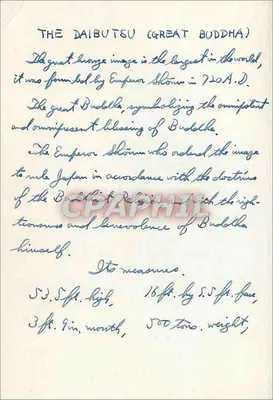 THE DAIBUTSU (GREAT BUDDHA)
The great bronze image is the largest in the world,
it was founded by Emperor Shōmu in 720 A.D.
The great Buddha symbolizing the omnipotent
and omnipresent blessing of Buddha.
The Emperor Shōmu who ordered the image
to rule Japan in accordance with the doctrine
of the Buddhist Religion with the righ-
teousness and benevolence of Buddha
himself.
Its measures.
53.5 ft. high, 16 ft. by 5.5 ft. face,
3 ft. 9 in. mouth, 500 tons. weight,
CPAPHIL